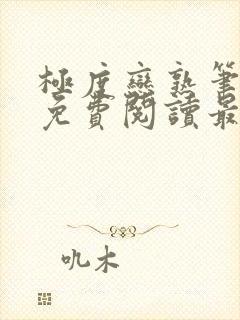 極度戀熟筆
免費閱讀最
吼木